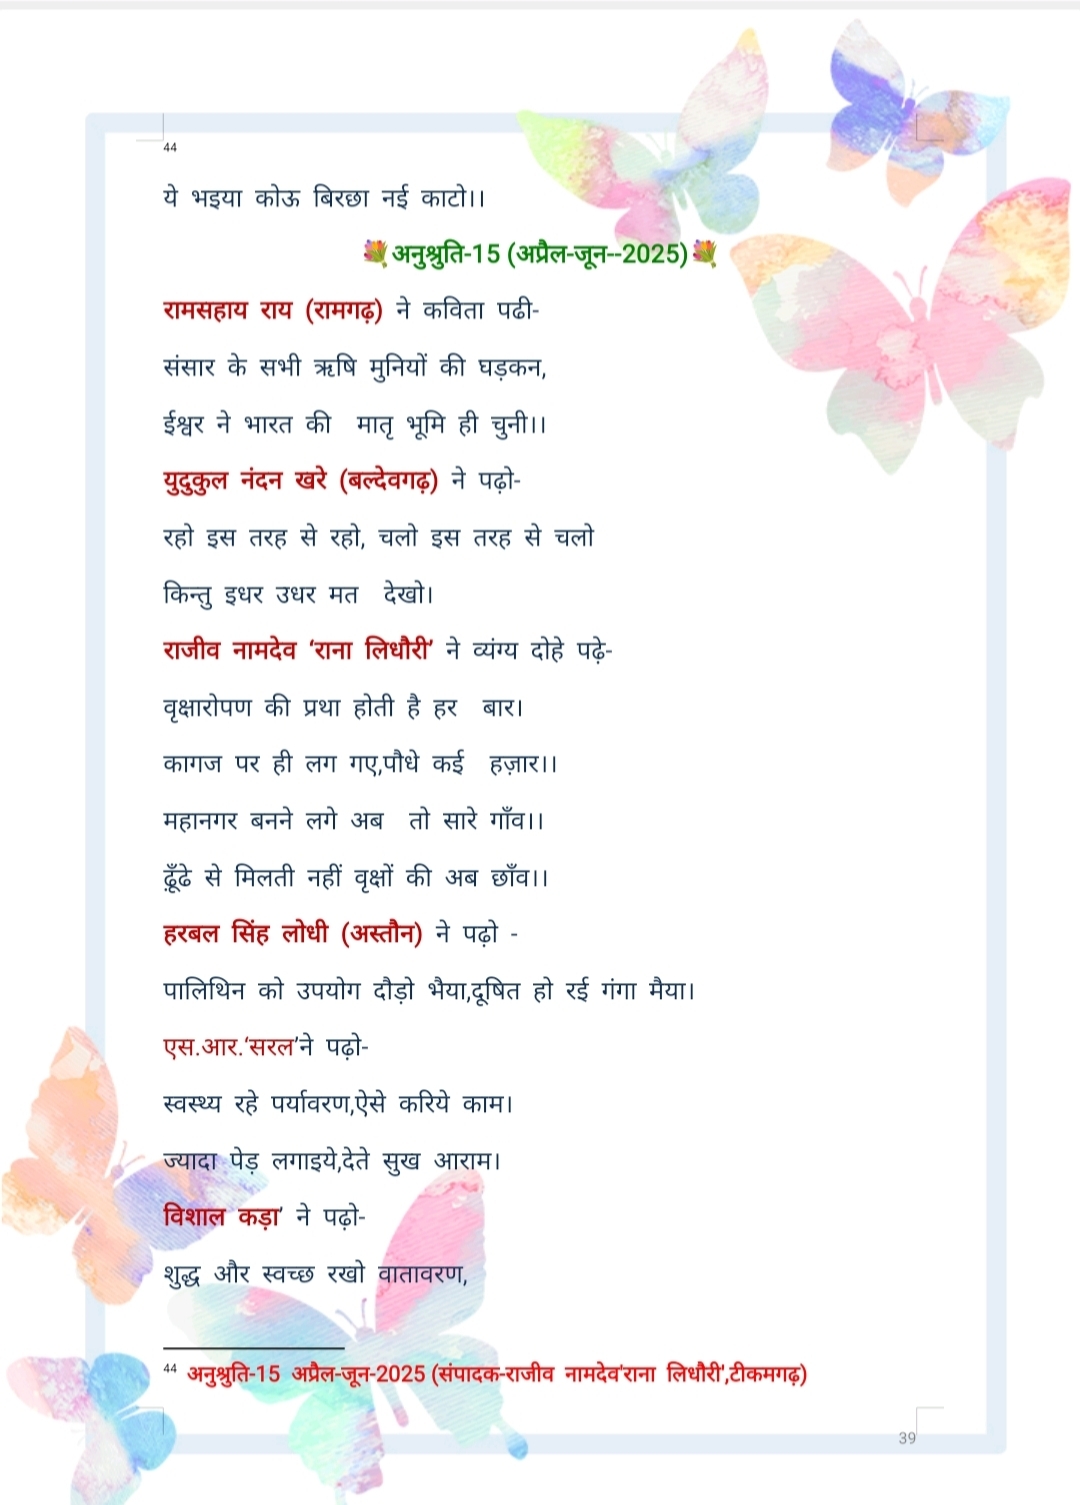 44
ये भइया कोऊ बिरछा नई काटो।।
💐अनुश्रुति-15 (अप्रैल-जून--2025)💐
रामसहाय राय (रामगढ़) ने कविता पढी-
संसार के सभी ऋषि मुनियों की घड़कन,
ईश्वर ने भारत की मातृ भूमि ही चुनी।।
युदुकुल नंदन खरे (बल्देवगढ़) ने पढ़ो-
रहो इस तरह से रहो, चलो इस तरह से चलो
किन्तु इधर उधर मत देखो।
राजीव नामदेव ‘राना लिधौरी’ ने व्यंग्य दोहे पढ़े-
वृक्षारोपण की प्रथा होती है हर बार।
कागज पर ही लग गए,पौधे कई हज़ार।।
महानगर बनने लगे अब तो सारे गाँव।।
ढूँढे से मिलती नहीं वृक्षों की अब छाँव।।
हरबल सिंह लोधी (अस्तौन) ने पढ़ो -
पालिथिन को उपयोग दौड़ो भैया,दूषित हो रई गंगा मैया।
एस.आर.‘सरल’ने पढ़ो-
स्वस्थ्य रहे पर्यावरण,ऐसे करिये काम।
ज्यादा पेड़ लगाइये,देते सुख आराम।
विशाल कड़ा’ ने पढ़ो-
शुद्ध और स्वच्छ रखो वातावरण,
44 अनुश्रुति-15 अप्रैल-जून-2025 (संपादक-राजीव नामदेव'राना लिधौरी',टीकमगढ़)
39